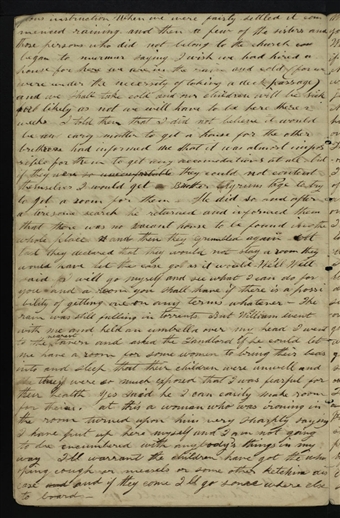 some instruction When we were fairly settled it com
menced raining and then a few of the sisters and
those persons who did not belong to the church
began to murmur saying I wish we had hired a
house for here we are in the rain and cold
were under the necessity of taking a deck passage
and we shall take cold and our children will be sick
likely as not we will have to be here
weeks I told them that I did not believe it would
be an easy matter to get a house for the other
brethren had informed me that it was almost impos
sible for them to get any accomodations at all but
if they were so uncomfortable they could not content
themselves I would get
to get a room for them He did so and after
a search he returned and informed them
that there was no vacant house to be found in the
whole place then they grumbled again
but they declared that they would not they a room they
would have let the consequences Well Well
said I will go myself and see what I can do for
you and a room you shall have if there is a possi
bility of getting one on any terms whatever The
rain was still falling in torrents But William went
with me and held an umbrella over my head I went
to the tavern and asked the Landlord if he could let
me have a room for some women to bring their beds
into and sleep that their children were unwell and
they were so much exposed that I was fearful for
their health Yes said he I can easily make room
for them. at this a woman who was ironing in
the room turned upon him very sharply saying
I have put up here myself and I am not going
to be encumbered with anybody's things in my
way I'll warrant the children have got the who
ping cough or measels or some other ketchin dis
ease and if they come I'll go somewhere else
to board